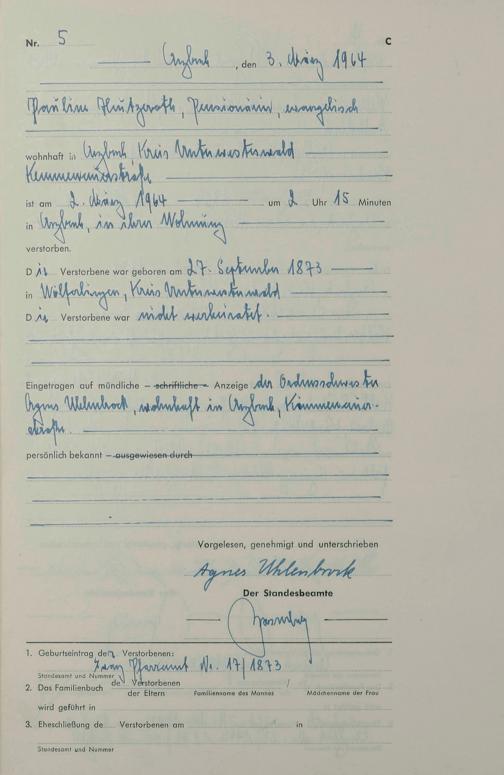 Nr. 5 C
Arzbach, den 3. März 1964
Pauline Hutzeroth, Pensionärin, evangelisch
wohnhaft in Arzbach, Kreis Unterwesterwald
ist am 2. März 1964 um 2 Uhr 15 Minuten
in Arzbach, in ihrer Wohnung
verstorben.
Die Verstorbene war geboren am 27. September 1873
in Wölferlingen, Kreis Unterwesterwald
Die Verstorbene war nicht verheiratet.
Eingetragen auf mündliche – schriftliche – Anzeige der Ordensschwester
Agnes Uhlenbrock, wohnhaft in Arzbach, Kemmenauer-
straße.
persönlich bekannt – ausgewiesen durch
Vorgelesen, genehmigt und unterschrieben
Agnes Uhlenbrock
Der Standesbeamte
1. Geburtseintrag der Verstorbenen:
Pfarramt Nr. 17/1873
Standesamt und Nummer
2. Das Familienbuch des Verstorbenen
der Eltern Familienname des Mannes Mädchenname der Frau
wird geführt in
3. Eheschließung de Verstorbenen am in
Standesamt und Nummer